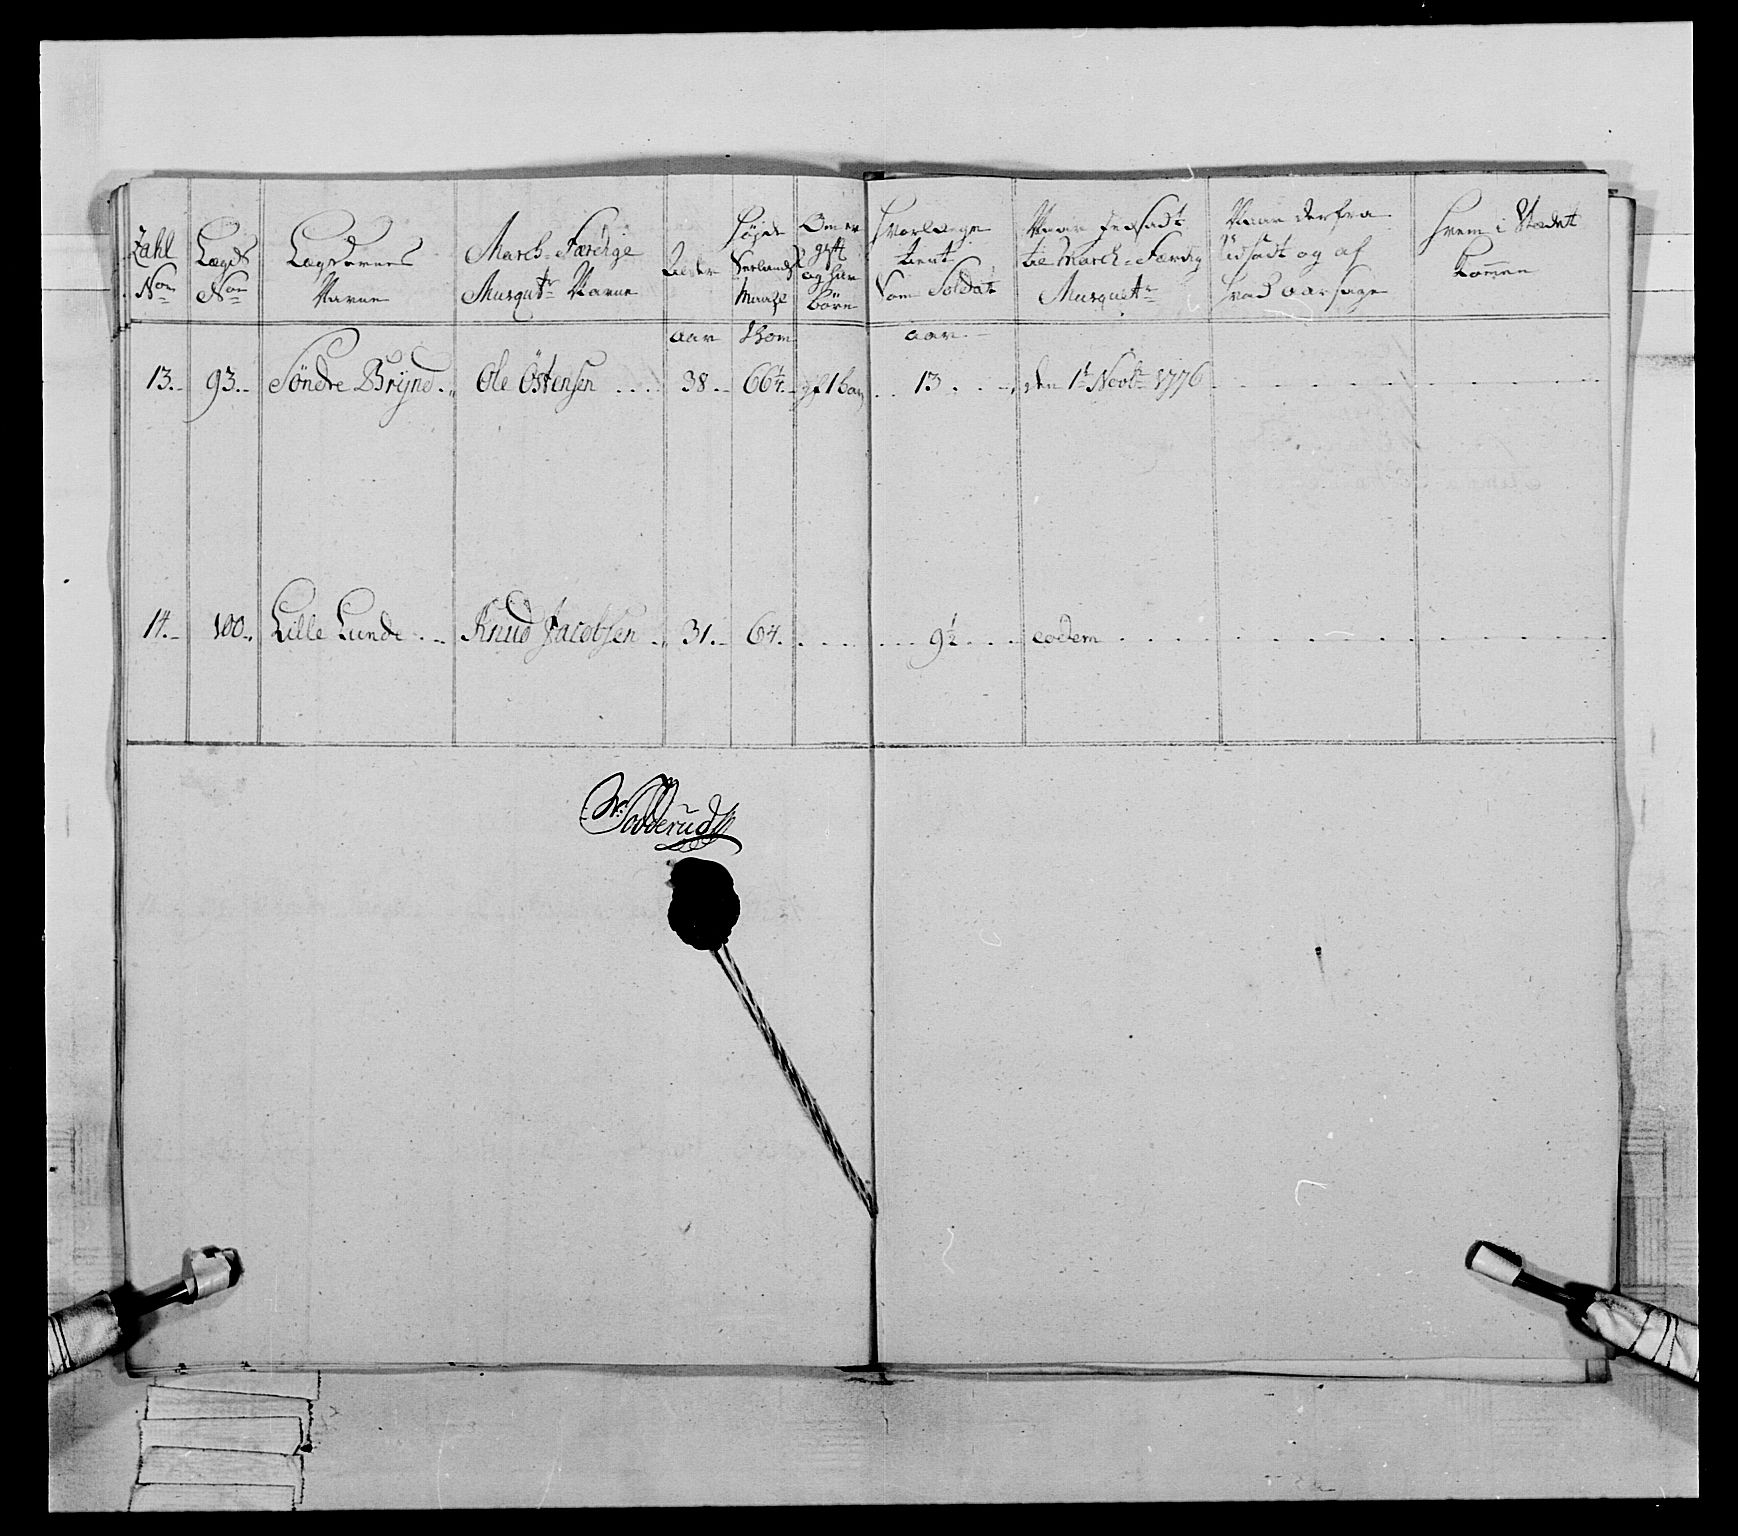 Zahl
Nom
Lægds
Nom
Lægdernes
Navne
March-Færdige
Musqutr Navne
Alder
Høyde
Maaze
Om er
gift
og har
børn
Hvorlænge
tient
Som Soldat
Naar indsadt
til March-Færdig
Musquetr
Naar derfra
udsadt og af
hvad aarsage
Hvem i Stædet
kommen
aar
Tom
aar
13. 93. Söndre Brÿnd Ole Östensen 38 66¼ gf 1 barn 13 den 1t Novbr 1776
14. 100. Lille Lunde Knud Jacobsen 31. 64. 9½ eodem